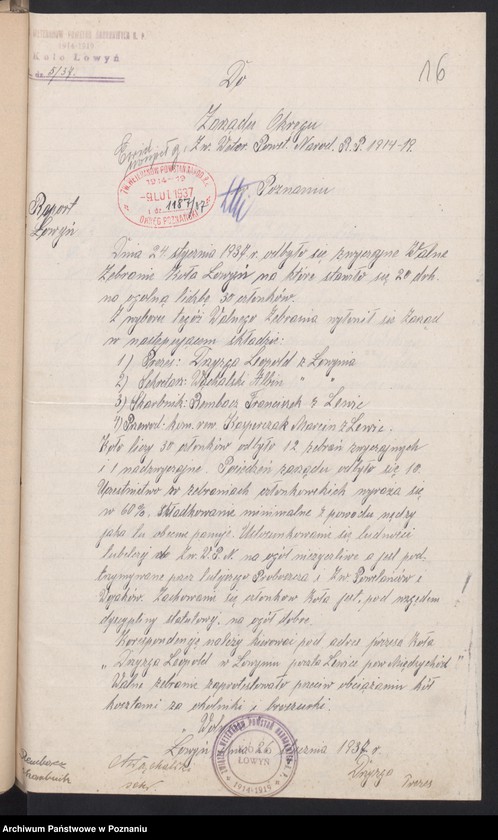 WETERANÓW POWSTAŃ NARODOWYCH R. P.
1914-1919
Koło Lowyń
5/37.
16
Do
Zarządu Okręgu
Zw. Weter. Powst. Narod. R.P. 1914-19.
ZW. WETERANÓW POWSTAŃ NAROD. R.P.
1914-19
-9 LUT 1937
1187/37
OKRĘG POZNAŃSKI
Poznaniu
Raport
Lowyń
Dnia 24. stycznia 1937 r. odbyło się zwyczajne Walne
Zebranie Koła Lowyń na które stawiło się 20 dch.
na ogólną liczbę 30 członków.
Z wyboru tegoż Walnego Zebrania wyłonił się Zarząd
w następującem składzie:
1) Prezes: Dzyrza Leopold z Lowynia
2) Sekretarz: Albin " "
3) Skarbnik: Rembacz Franciszek z Lewic
4) Przewod. kom. rew. Kasperczak Marcin z Lewic.
Koło liczy 30 członków odbyło 12 zebrań zwyczajnych
i 1 nadzwyczajne. Posiedzeń zarządu odbyło się 10.
Uczestnictwo w zebraniach członkowskich wyraża się
w 60%. Składkowanie minimalne z powodu nędzy
jaka tu obecnie panuje. Ustosunkowanie się ludności
tubelczej do Zw. W.P.N. na ogół nieżyczliwe a jest pod-
trzymywane przez tutejszego Proboszcza i Zw. Powstańców i
Wojaków. Zachowanie się członków Koła jest, pod względem
dyscypliny statutowej na ogół dobre.
Korespondencję należy kierować pod adres prezesa Koła
" Dzyrza Leopold w Lowyniu poczta Lewice pow. Międzychód "
Walne zebranie zaprotestowało przeciw obciążaniu kół
kosztami za okólniki i broszurki.
Lowyń dnia 26. stycznia 1937 r.
ZWIĄZEK WETERANÓW POWSTAŃ NARODOWYCH R. P.
KOŁO
LOWYŃ
1914-1919
Rembacz
skarbnik
sekr.
Dzyrza
Prezes
Archiwum Państwowe w Poznaniu